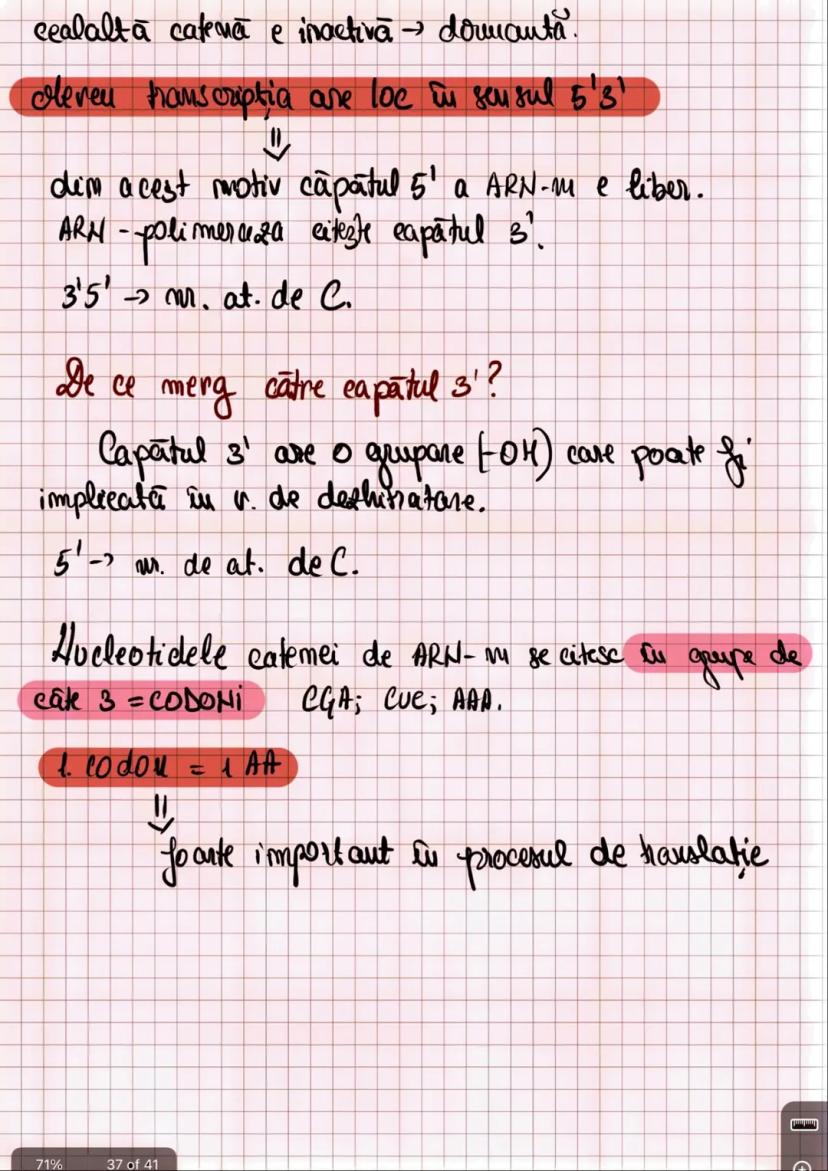 cealaltă catenă e inactivă → dormantă.
Mereu transcripția are loc în sensul 5'3'
⇓
din acest motiv căpătul 5' a ARN-m e liber.
ARN-polimeraza citește capătul 3'.
3'5' → nr. at. de C.
De ce merg către capătul 3'?
Capătul 3' are o grupare (-OH) care poate fi
implicată în r. de deshitratare.
5' → nr. de at. de C.
Nucleotidele catenei de ARN-m se citesc în grupe de
câte 3 = CODONI CGA; CUC; AAA.
1. codon = 1 AA
⇓
foarte important în procesul de translație
71% 37 of 41